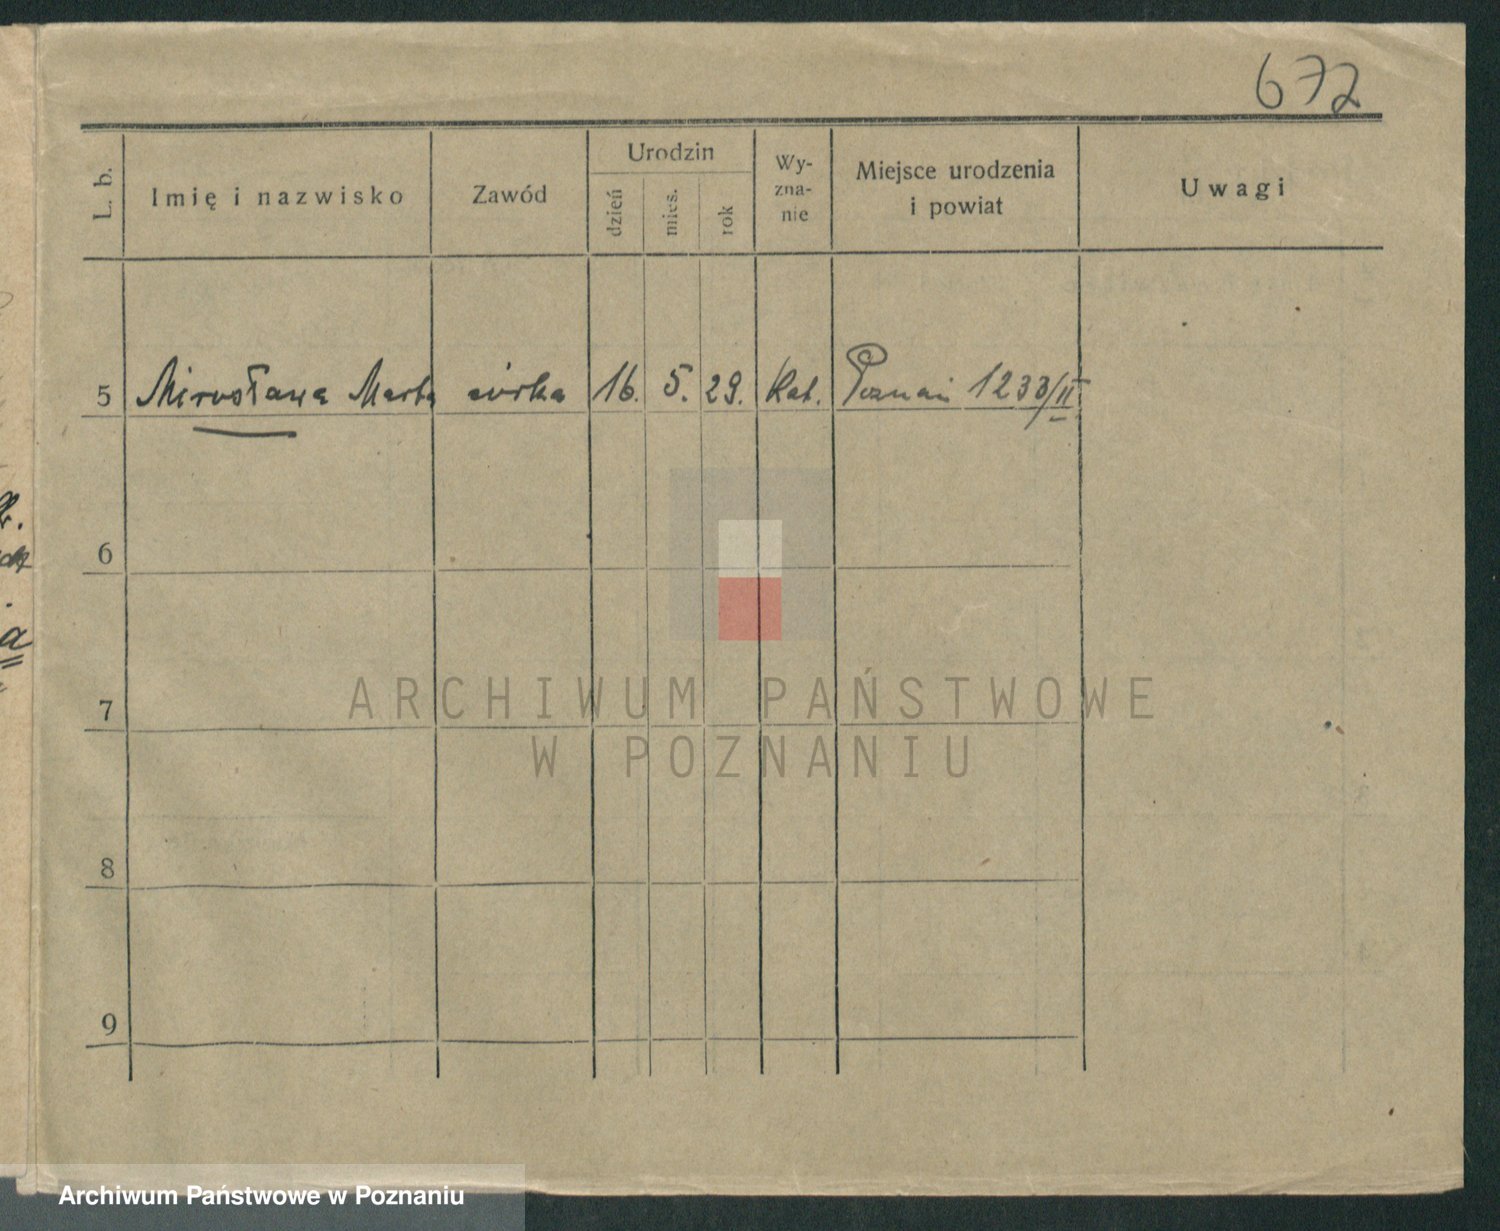 672
L. b. Imię i nazwisko Zawód Urodzin dzień mies. rok Wy-zna-nie Miejsce urodzenia i powiat Uwagi
5 Mirosława Marta córka 16. 5. 29. kat. Poznań 1233/II
6
7
ARCHIWUM PAŃSTWOWE
W POZNANIU
8
9
Archiwum Państwowe w Poznaniu